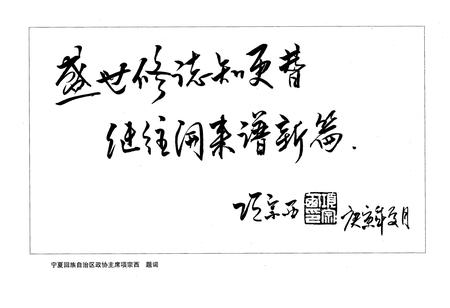 盛世修誌知更替
继往開来谱新篇.
项宗西 庚寅年夏月
宁夏回族自治区政协主席项宗西 题词